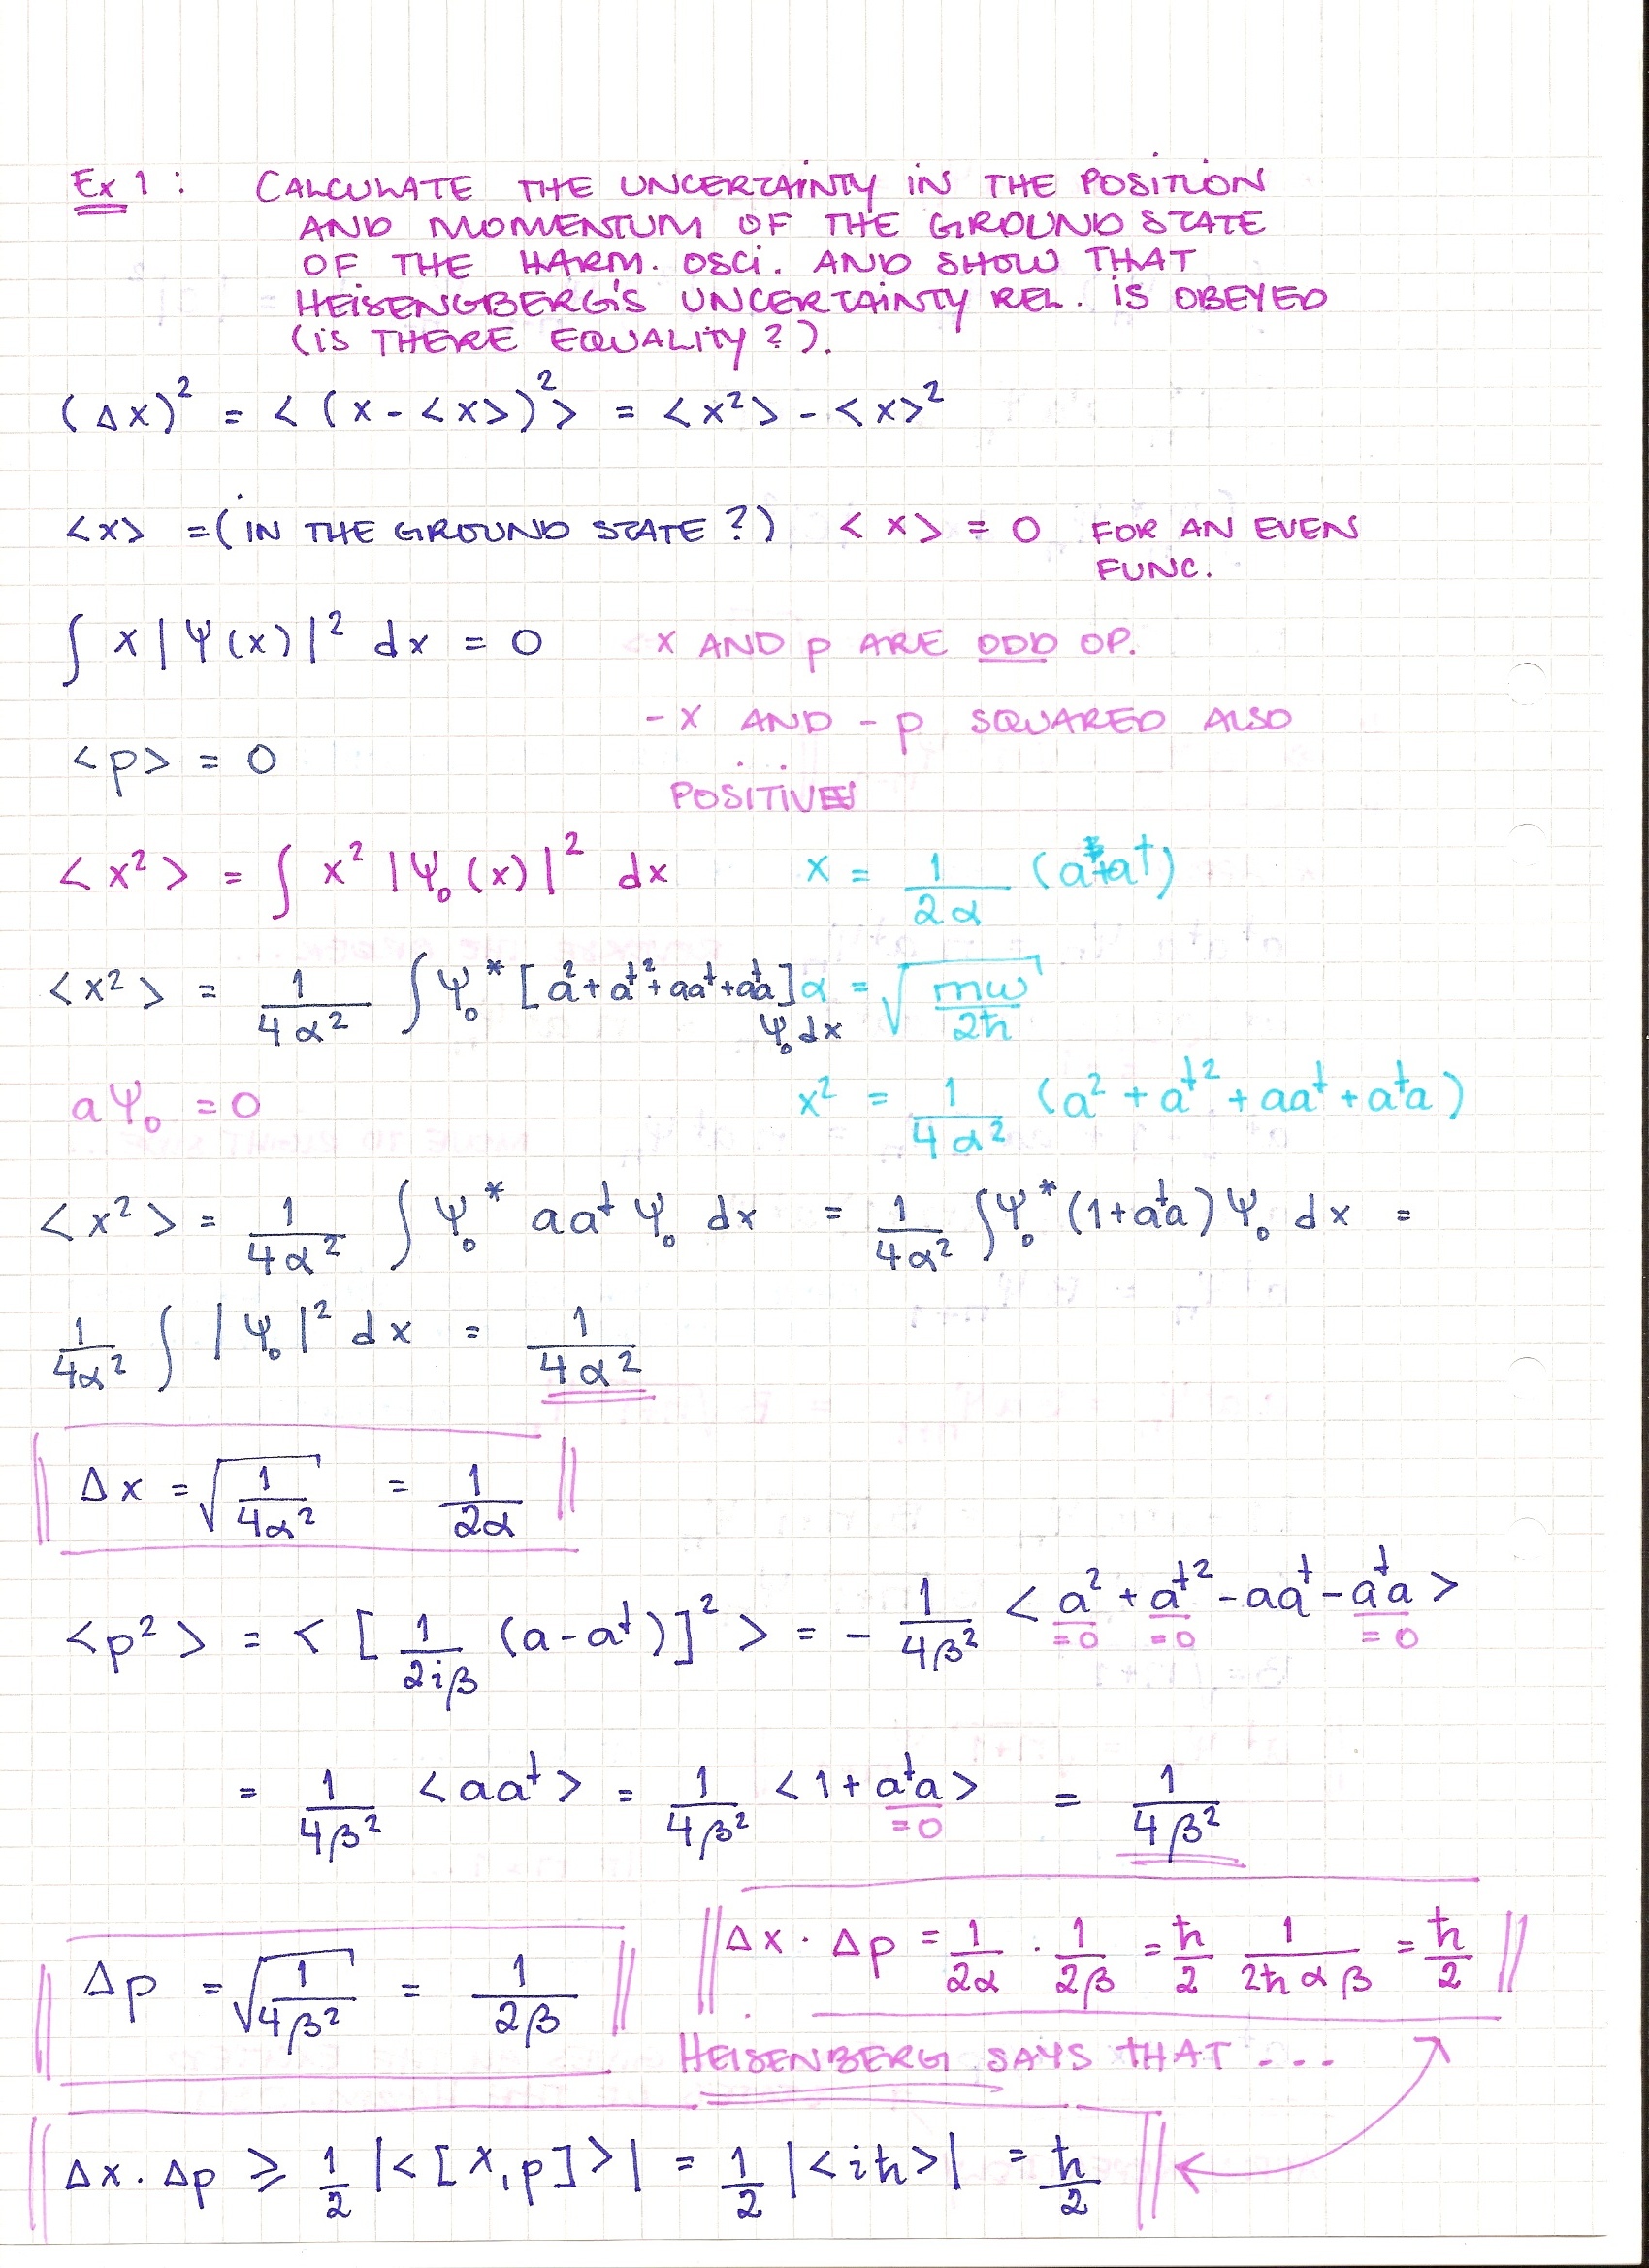 Ex 1 : CALCULATE THE UNCERTAINTY IN THE POSITION
AND MOMENTUM OF THE GROUND STATE
OF THE HARM. OSCI. AND SHOW THAT
HEISENGBERG'S UNCERTAINTY REL. IS OBEYED
(IS THERE EQUALITY?).
(Δx)² = <(x - <x>)²> = <x²> - <x>²
<x> = (IN THE GROUND STATE?) <x> = 0 FOR AN EVEN
FUNC.
∫ x |Ψ(x)|² dx = 0 x AND p ARE ODD OP.
-x AND -p SQUARED ALSO
<p> = 0
POSITIVE
<x²> = ∫ x² |Ψ₀(x)|² dx x = 1/2α (a+a†)
<x²> = 1/4α² ∫ Ψ₀* [a² + a†² + aa† + a†a] Ψ₀ dx α = √(mω/2ħ)
aΨ₀ = 0 x² = 1/4α² (a² + a†² + aa† + a†a)
<x²> = 1/4α² ∫ Ψ₀* aa† Ψ₀ dx = 1/4α² ∫ Ψ₀* (1+a†a) Ψ₀ dx =
1/4α² ∫ |Ψ₀|² dx = 1/4α²
Δx = √(1/4α²) = 1/2α
<p²> = <[1/2iβ (a-a†)]²> = - 1/4β² <a² + a†² - aa† - a†a>
=0 =0 =0
= 1/4β² <aa†> = 1/4β² <1 + a†a> = 1/4β²
=0
Δx · Δp = 1/2α · 1/2β = ħ/2 1/2ħαβ = ħ/2
Δp = √(1/4β²) = 1/2β
HEISENBERG SAYS THAT ...
Δx · Δp ≥ 1/2 |<[x,p]>| = 1/2 |<iħ>| = ħ/2